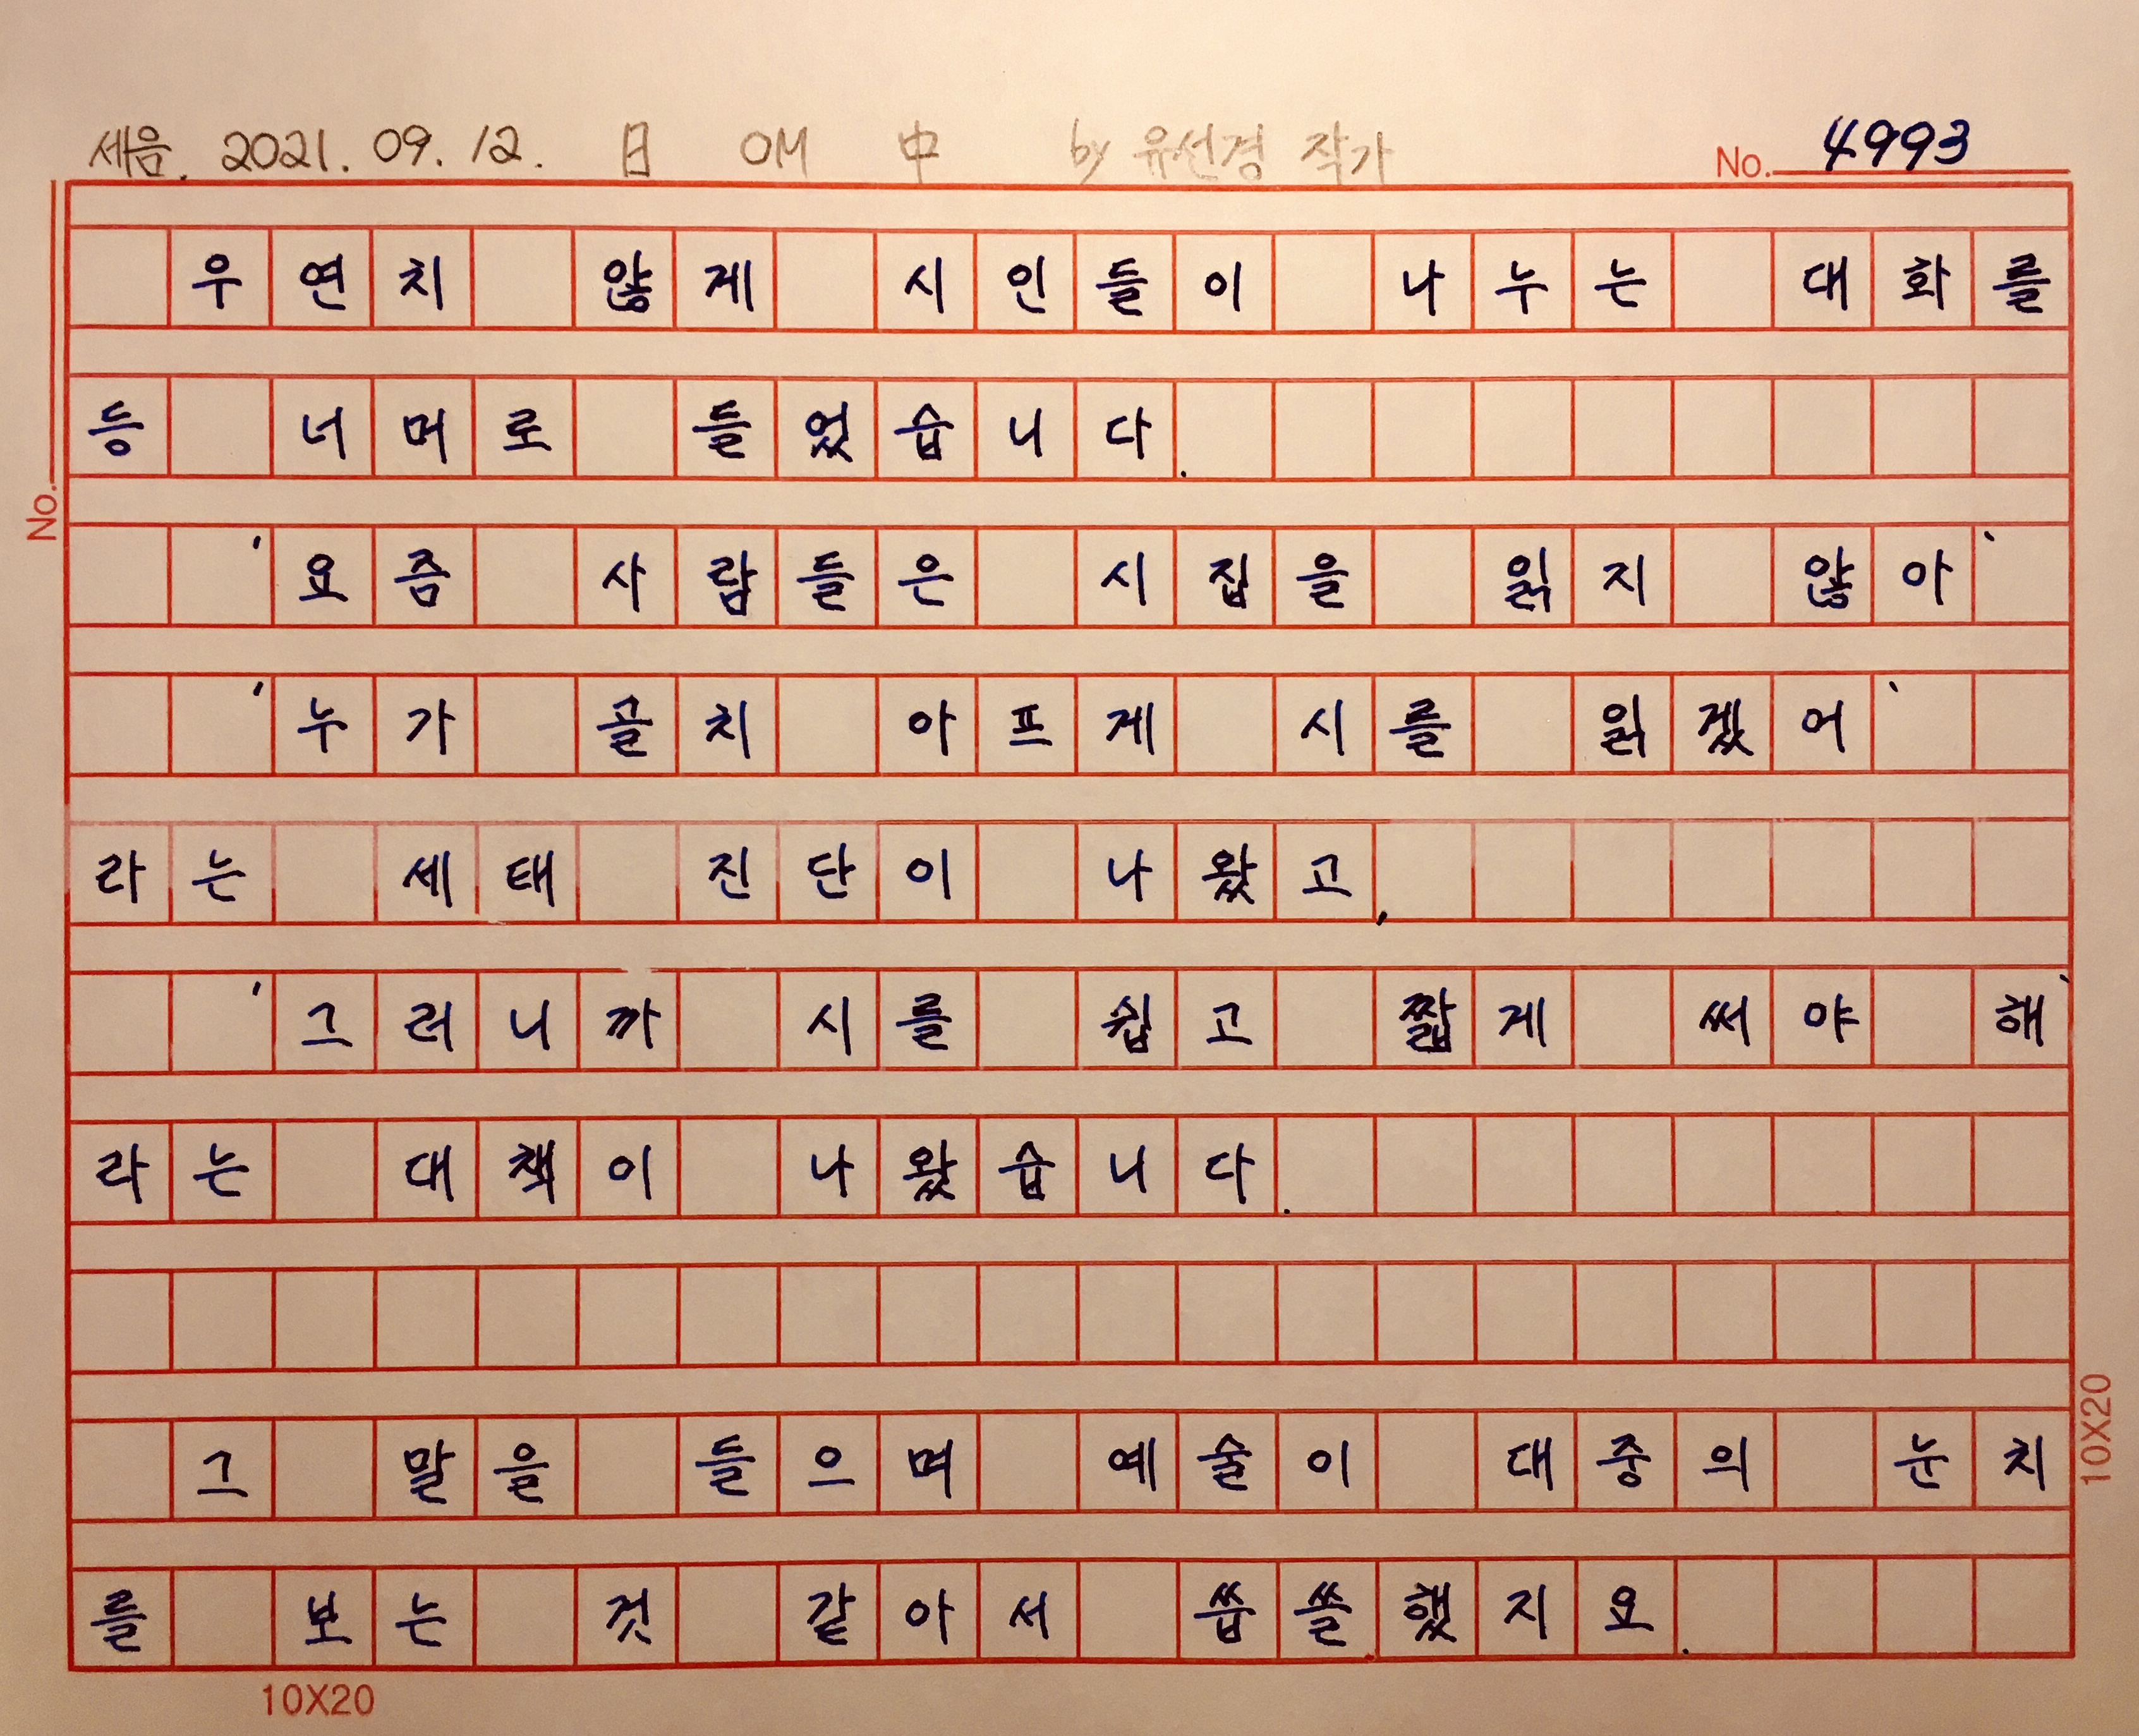 세음. 2021. 09. 12. 日 OM 中 by 유선경 작가 No. 4993
우연치 않게 시인들이 나누는 대화를
등 너머로 들었습니다.
'요즘 사람들은 시집을 읽지 않아'
'누가 골치 아프게 시를 읽겠어'
라는 세태 진단이 나왔고,
'그러니까 시를 쉽고 짧게 써야 해'
라는 대책이 나왔습니다.
그 말을 들으며 예술이 대중의 눈치
를 보는 것 같아서 씁쓸했지요.
No.
10X20
10X20